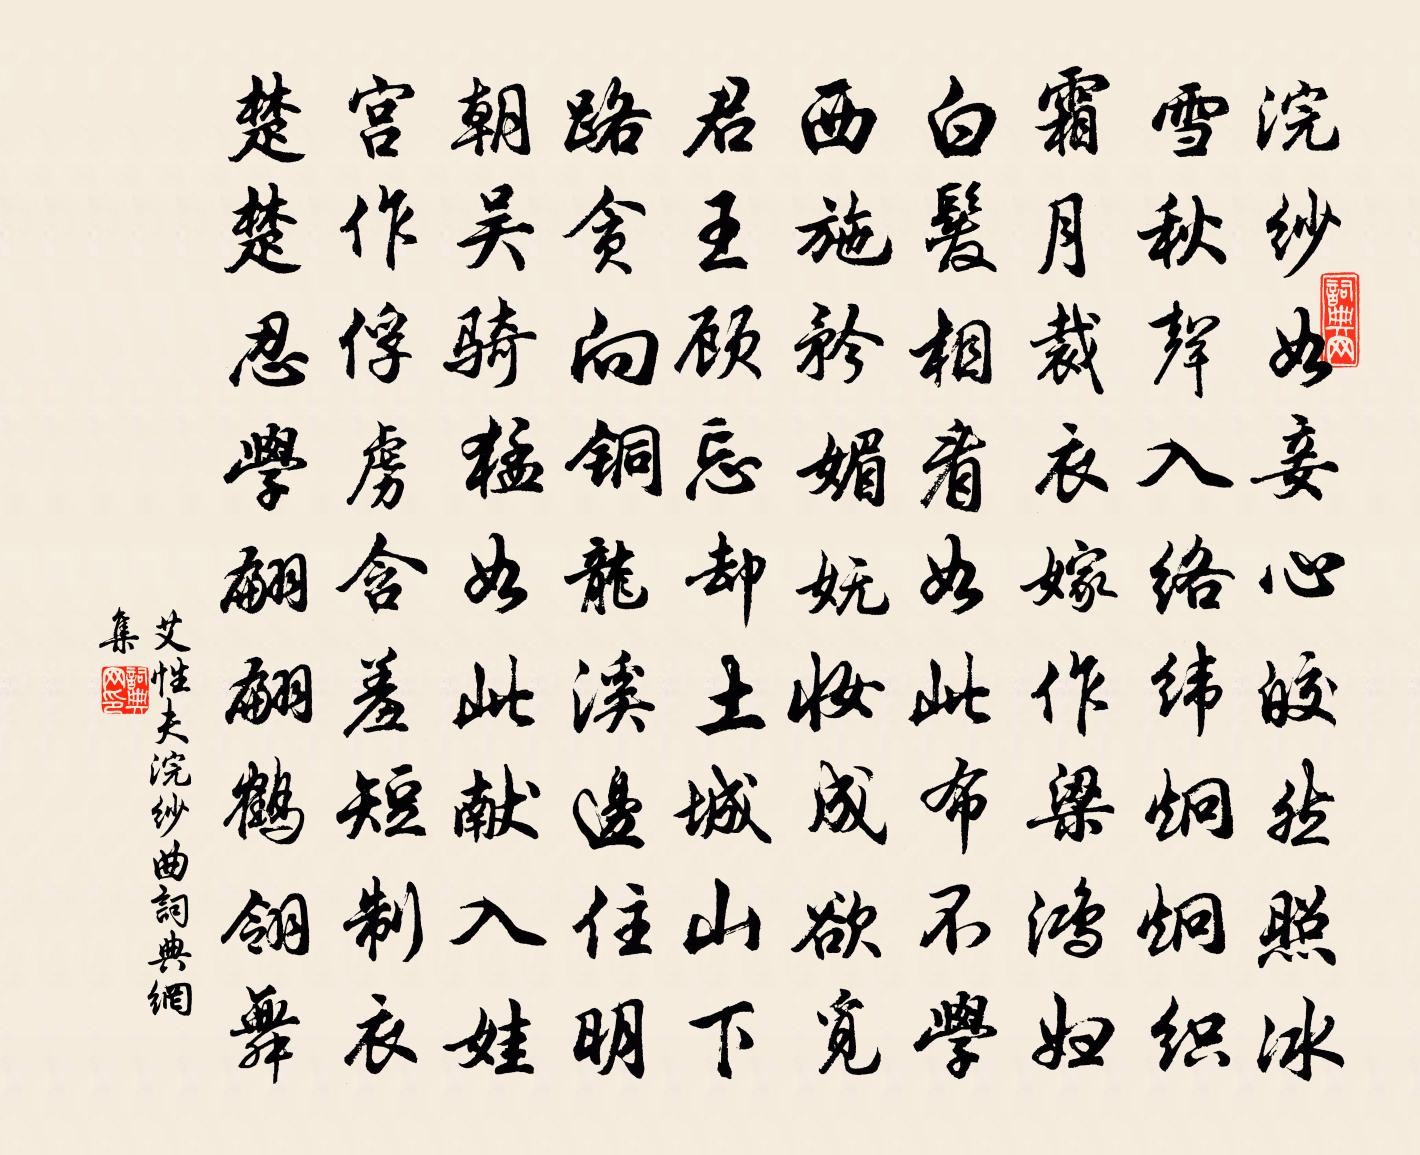 浣纱如妾心皎然照冰
雪秋聲入络纬炯炯织
霜月裁衣嫁作梁鸿妇
白髮相看如此布不學
西施矜媚妩妆成欲觅
君王顾忘却土城山下
路贪向铜龍溪邊住明
朝吴骑猛如此献入娃
宫作俘虏含羞短制衣
楚楚忍學翩翩鹤翎舞
艾性夫浣纱曲詞典網
集
詞典网
詞典网印